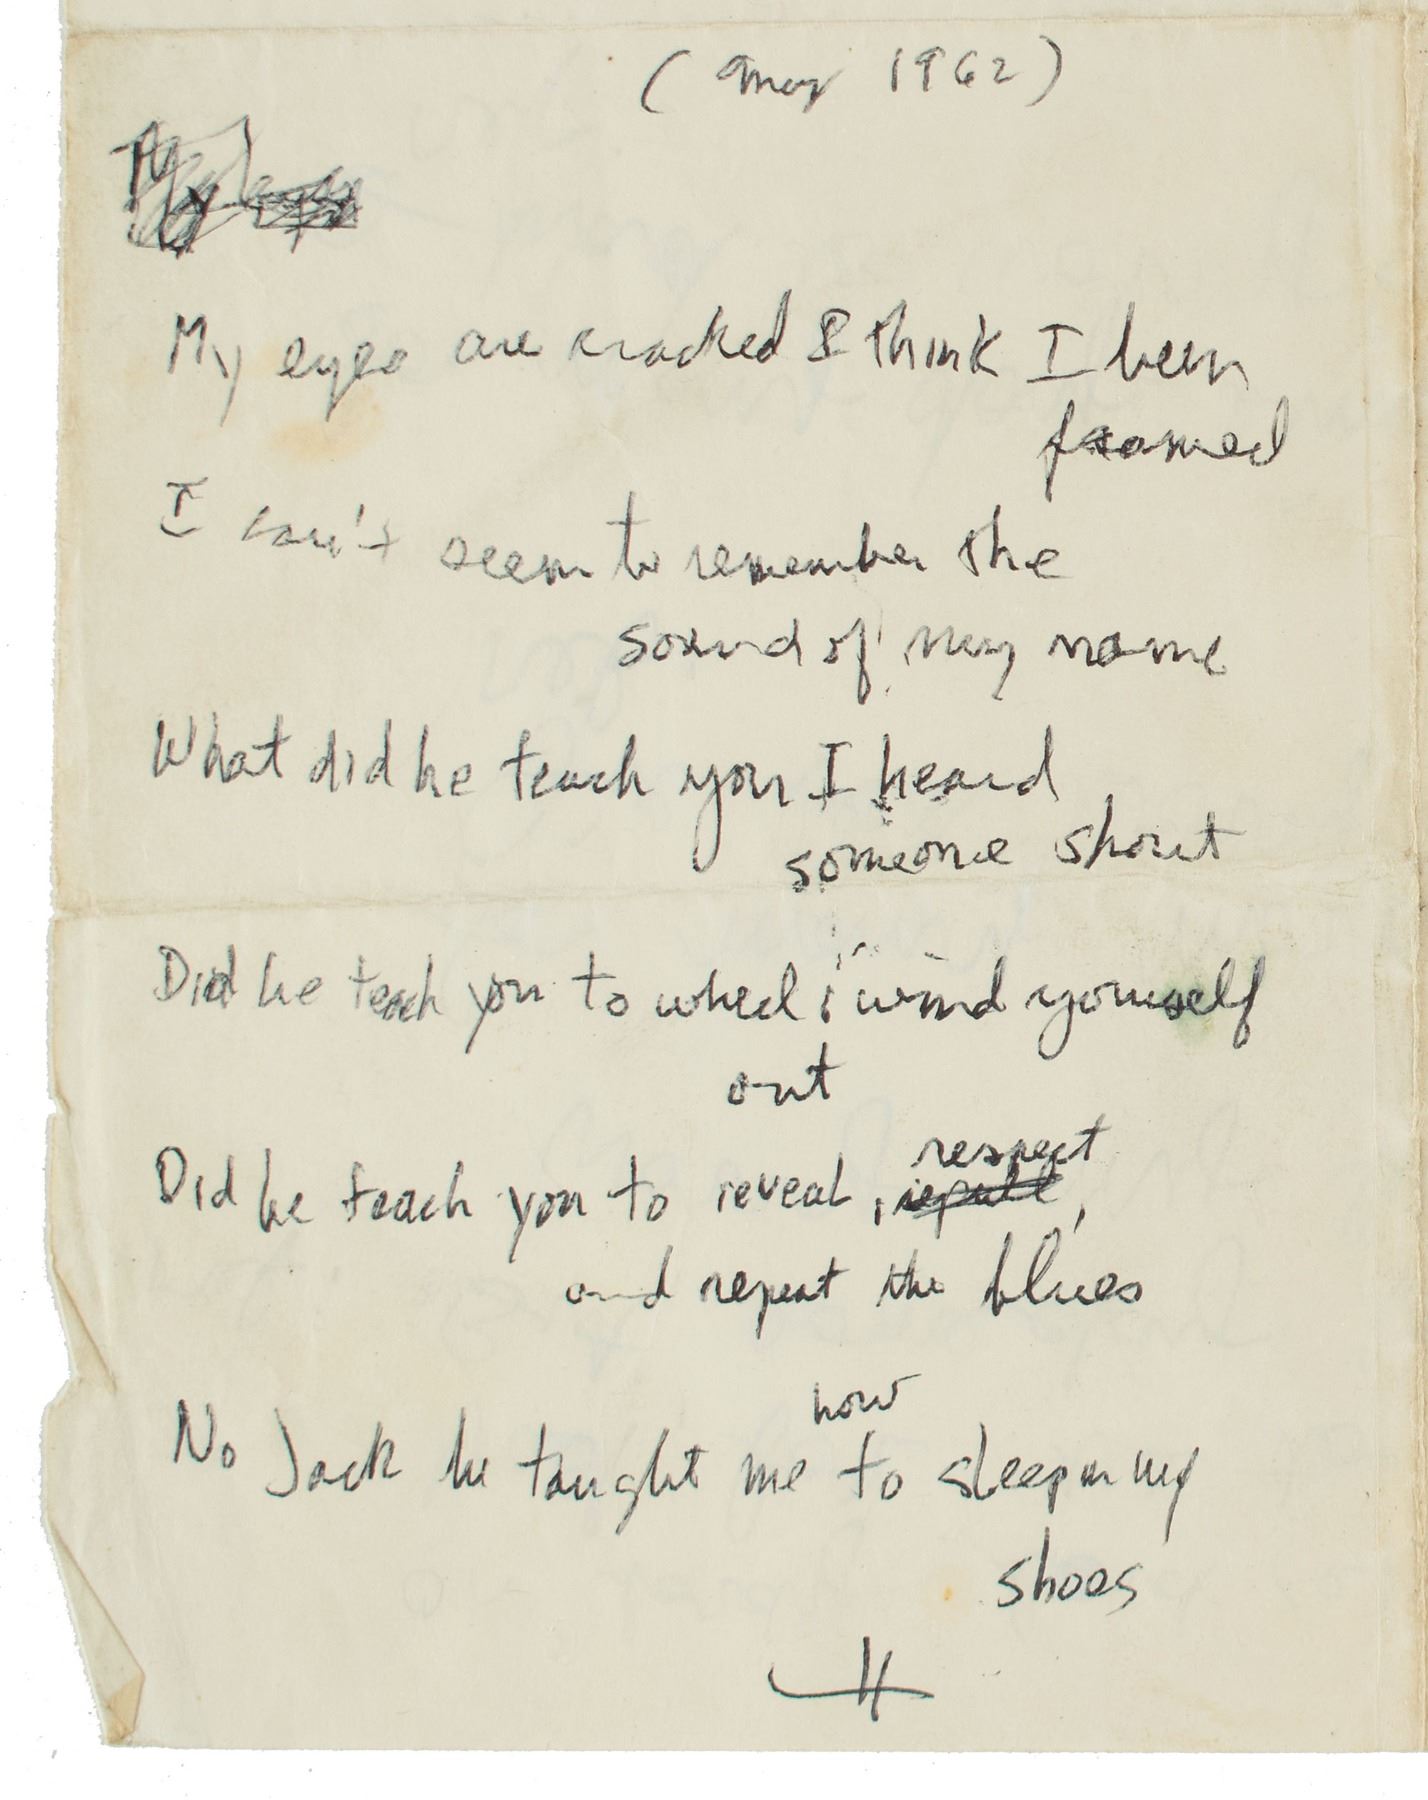 (May 1962)
My eyes are cracked I think I been
framed
I can't seem to remember the
sound of my name
What did he teach you I heard
someone shout
Did he teach you to wheel & wind yourself
out
respect
Did he teach you to reveal,
and repeat the blues
how
No Jack he taught me to sleep in my
shoes